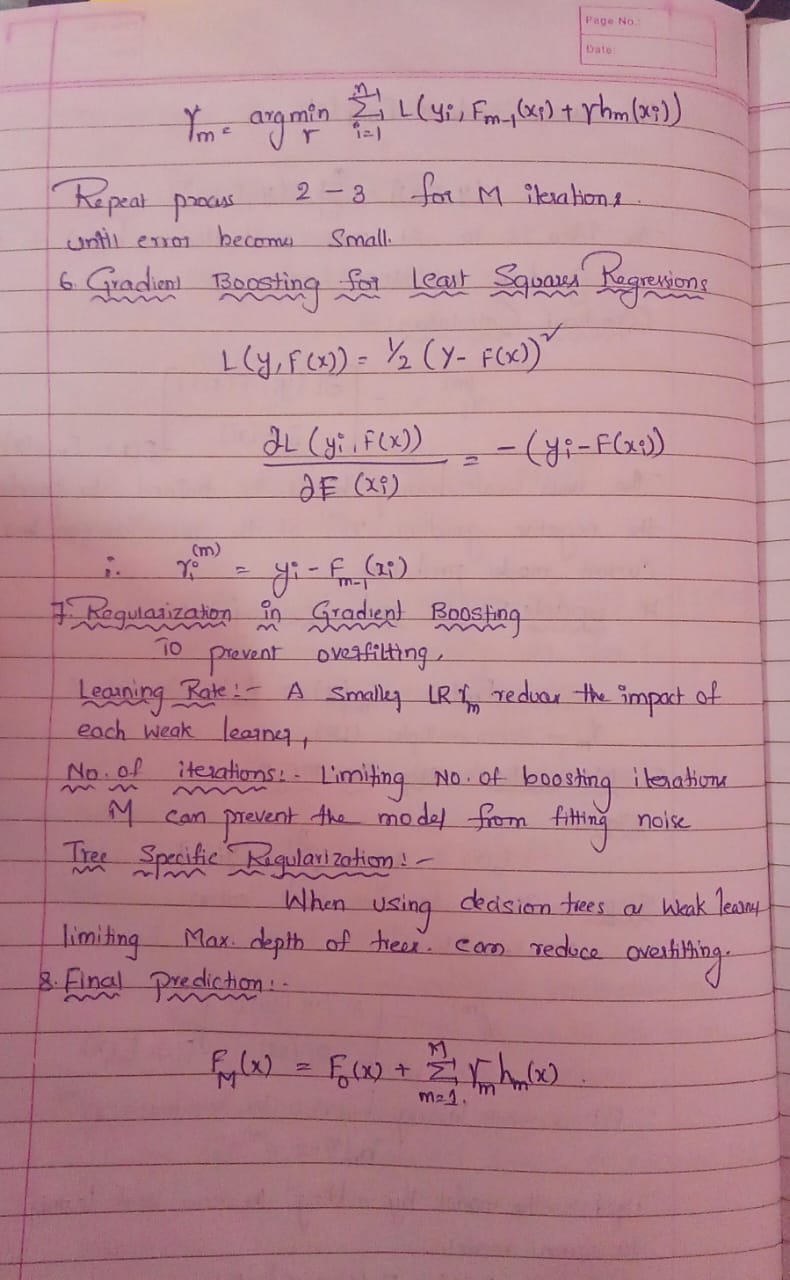 Page No.:
Date:
γm = argmin γ Σ i=1 n L(yi, Fm-1(xi) + γhm(xi))
Repeat process 2 - 3 for M iterations.
until error becomes small.
6. Gradient Boosting for Least Squares Regressions
L(y, F(x)) = 1/2 (y - F(x))²
∂L (yi, F(x)) / ∂F (xi) = -(yi - F(xi))
∴ ri(m) = yi - Fm-1(xi)
7. Regularization in Gradient Boosting
To prevent overfitting,
Learning Rate :- A smaller LR γm reduces the impact of
each weak learner,
No. of iterations :- Limiting No. of boosting iterations
M can prevent the model from fitting noise
Tree Specific Regularization :-
When using decision trees as weak learner
limiting Max. depth of trees. can reduce overfitting.
8. Final Prediction :-
FM(x) = F0(x) + Σ m=1 M γm hm(x).